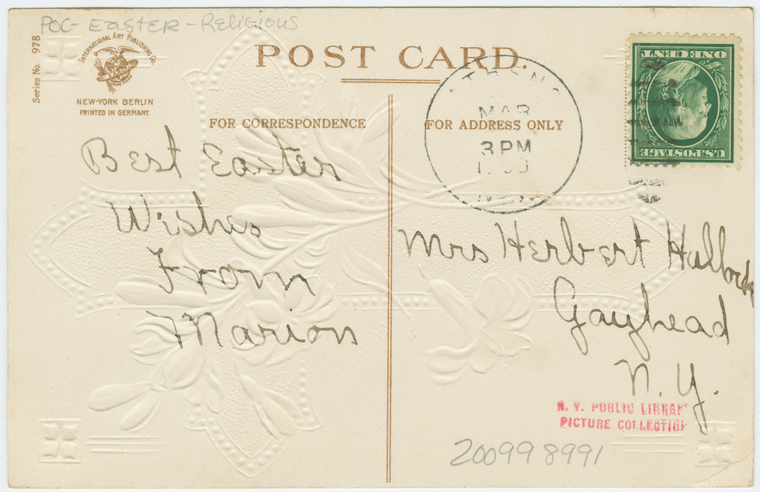 POC - Easter - Religious
Series No. 978
INTERNATIONAL ART PUBLISHING CO.
NEW-YORK BERLIN
PRINTED IN GERMANY.
POST CARD.
FOR CORRESPONDENCE
FOR ADDRESS ONLY
MAR
3 PM
U.S. POSTAGE
ONE CENT
Best Easter
Wishes
From
Marion
Mrs Herbert Hallock
Gayhead
N.Y.
N. Y. PUBLIC LIBRARY
PICTURE COLLECTION
200998991